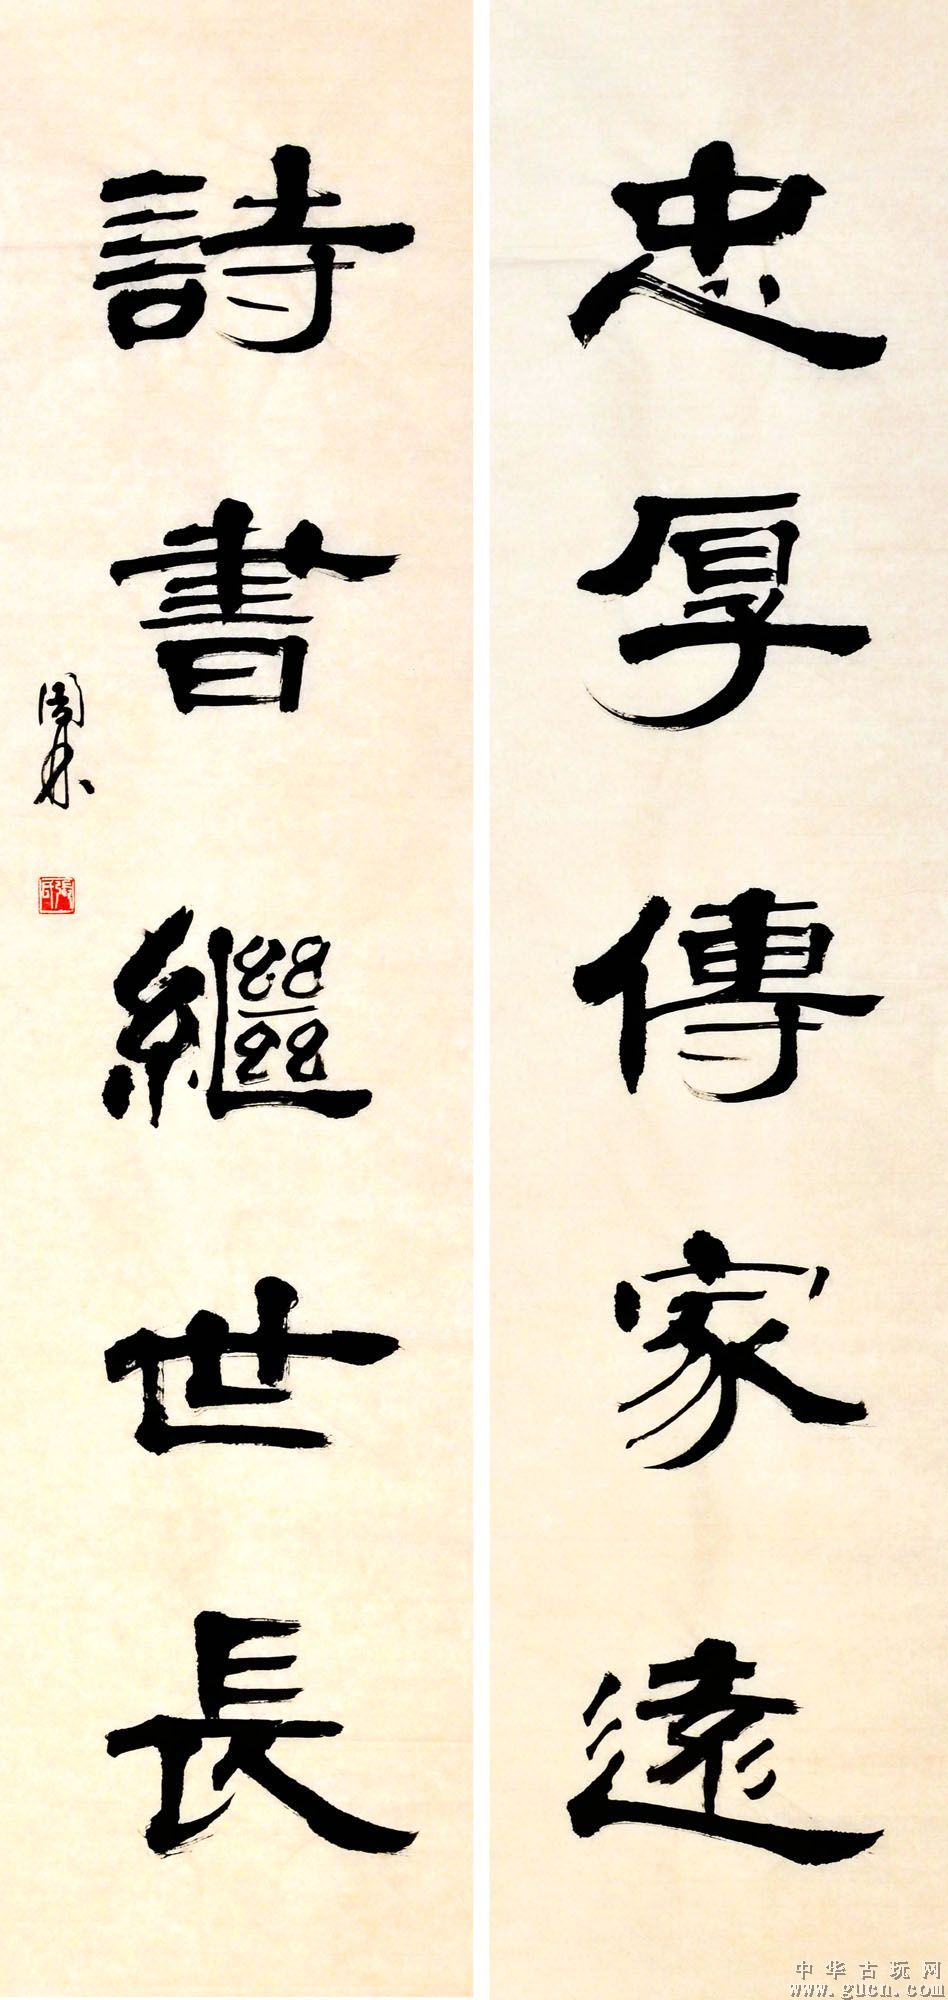 忠厚傳家遠
詩書繼世長
中华古玩网
www.gucn.com